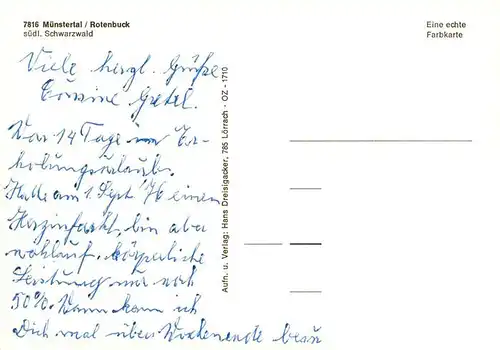 7816 Münstertal / Rotenbuck
südl. Schwarzwald
Eine echte
Farbkarte
Viele herzl. Grüße
Cousine Gretel.
Vor 14 Tage im Er-
holungsurlaub.
Hatte am 1. Sept. 76 einen
Herzinfarkt, bin aber
wohlauf, körperliche
Leistung nur noch
50%. Wann kann ich
Dich mal übers Wochenende besu
Aufn. u. Verlag: Hans Dreisigacker, 785 Lörrach - OZ - 1710